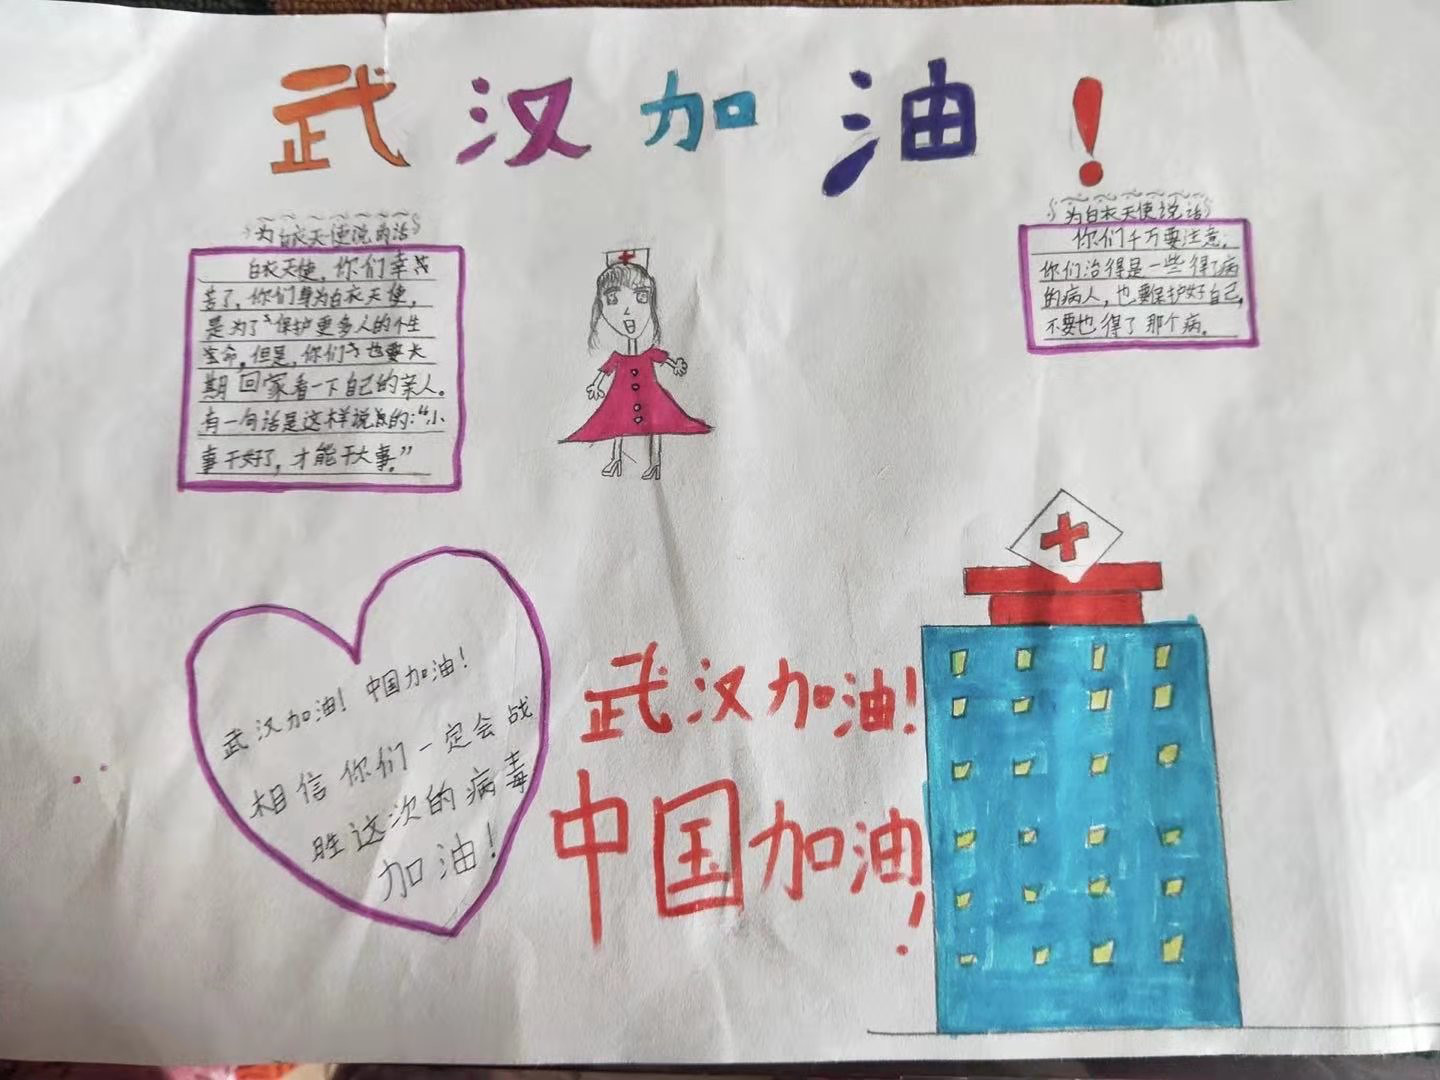 武汉加油！
为白衣天使说的话
白衣天使，你们幸苦
苦了，你们身为白衣天使，
是为了保护更多人的个生
生命，但是，你们也要长
期回家看一下自己的亲人。
有一句话是这样说的：“小
事干好了，才能干大事。”
为白衣天使说话
你们千万要注意，
你们治得是一些得了病
的病人，也要保护好自己，
不要也得了那个病。
武汉加油！中国加油！
相信你们一定会战
胜这次的病毒
加油！
武汉加油！
中国加油！